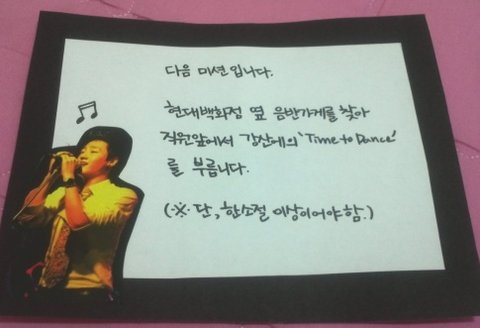 다음 미션입니다.
현대백화점 옆 음반가게를 찾아
직원앞에서 강산에의 'Time to Dance'
를 부릅니다.
(※ 단, 한소절 이상이어야 함.)